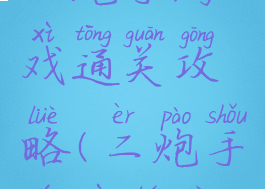 xì tōng guān gōng
戏通关攻
lüè èr pào shǒu
略(二炮手